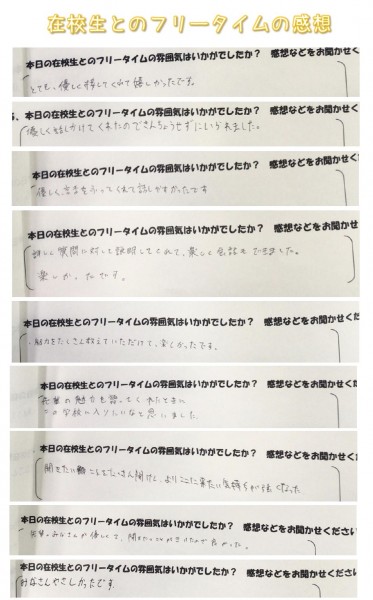 在校生とのフリータイムの感想
本日の在校生とのフリータイムの雰囲気はいかがでしたか？　感想などをお聞かせく
とても、優しく接してくれて嬉しかったです。
本日の在校生とのフリータイムの雰囲気はいかがでしたか？　感想などをお聞かせく
優しく話しかけてくれたのできんちょうせずにいられました。
本日の在校生とのフリータイムの雰囲気はいかがでしたか？　感想などをお聞かせく
優しく、言葉をふってくれて話しやすかったです
本日の在校生とのフリータイムの雰囲気はいかがでしたか？　感想などをお聞かせく
質問に対して説明してくれて、楽しく会話もできました。
楽しかったです。
本日の在校生とのフリータイムの雰囲気はいかがでしたか？　感想などをお聞かせくだ
・魅力をたくさん教えていただけて、楽しかったです。
本日の在校生とのフリータイムの雰囲気はいかがでしたか？　感想などをお聞かせくだ
先輩の魅力を語ってくれたときに
この学校に入りたいなと思いました。
本日の在校生とのフリータイムの雰囲気はいかがでしたか？　感想などをお聞かせくだ
聞きたいことをたくさん聞けし、よりここに来たい気持ちが強くなった
本日の在校生とのフリータイムの雰囲気はいかがでしたか？　感想などをお聞かせください
みなさんが優しくて、良かった。
本日の在校生とのフリータイムの雰囲気はいかがでしたか？　感想などをお聞かせくださ
みなさんやさしかったです。